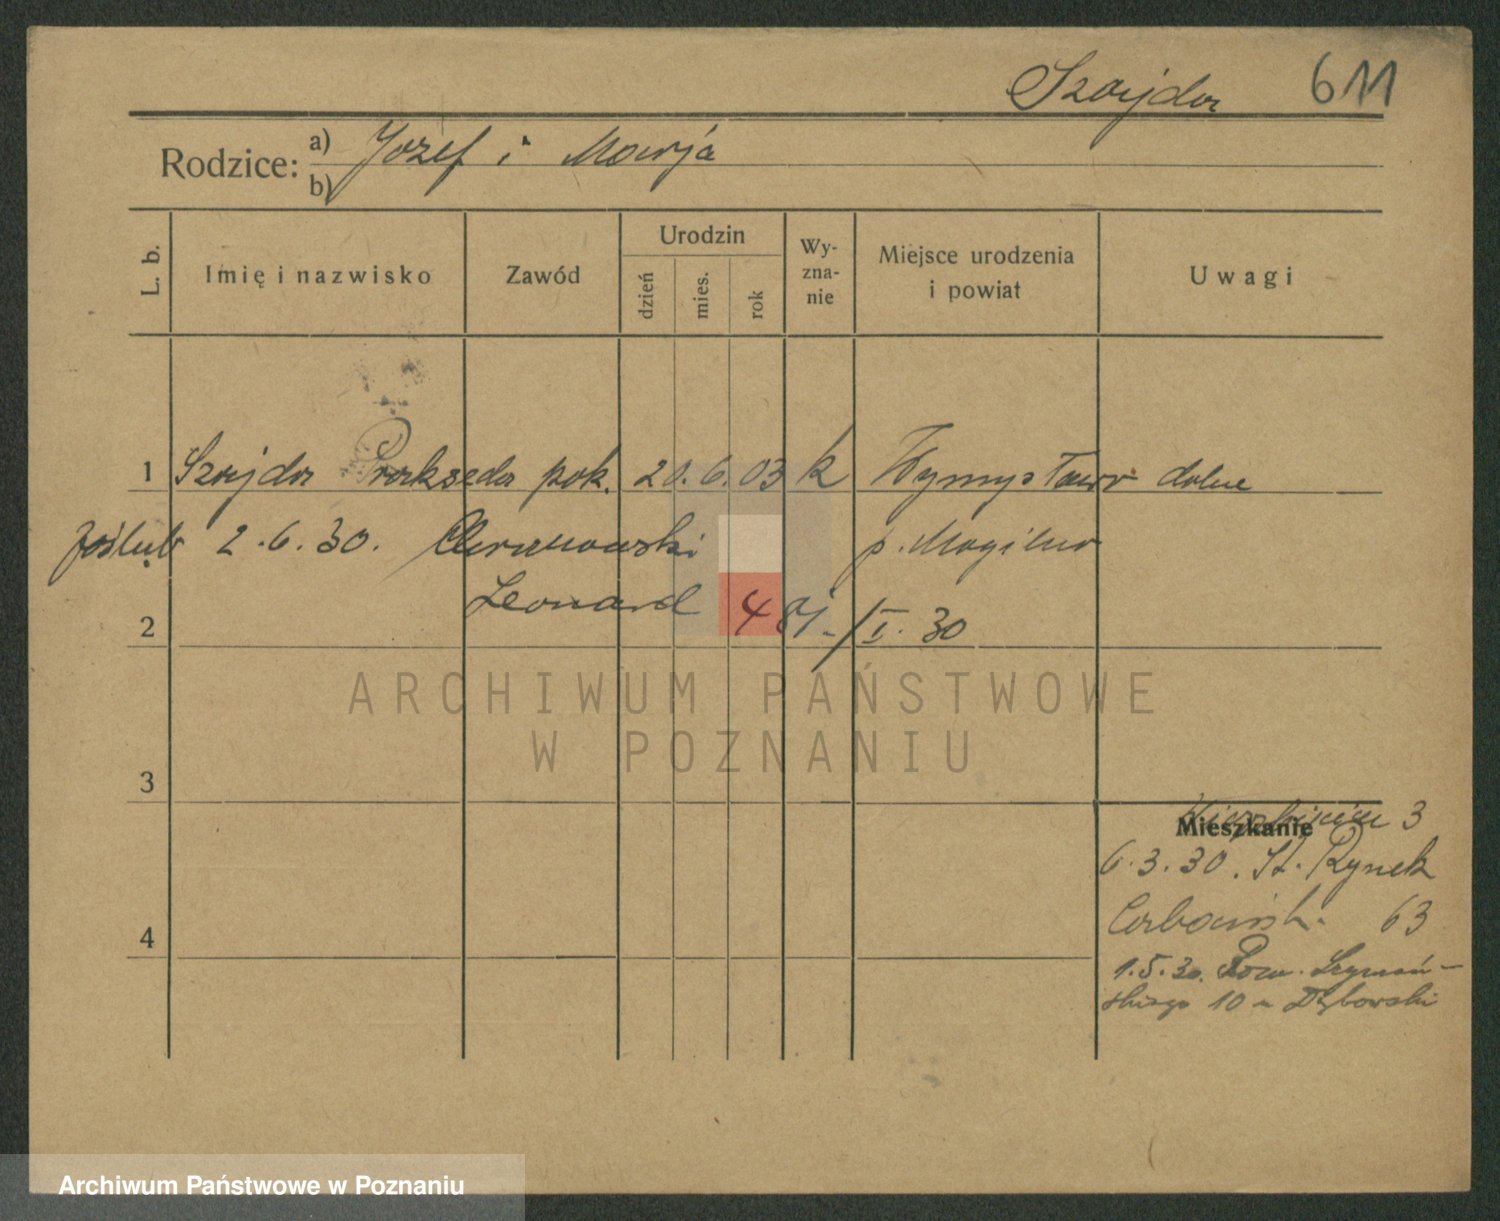 Szajda 611
Rodzice: a) Józef i Marja
b)
L. b. Imię i nazwisko Zawód Urodzin dzień mies. rok Wy-zna-nie Miejsce urodzenia i powiat Uwagi
1 Szajda Prakseda pok. 20. 6. 03 k Wymysłowo dolne
zaślub 2.6.30. p. Mogilno
Leonard
2 I. 30
ARCHIWUM PAŃSTWOWE
W POZNANIU
3
Mieszkanie 3
6.3.30. St. Rynek
4 63
1.5.30. Szymań-
skiego 10 Dąbowski
Archiwum Państwowe w Poznaniu